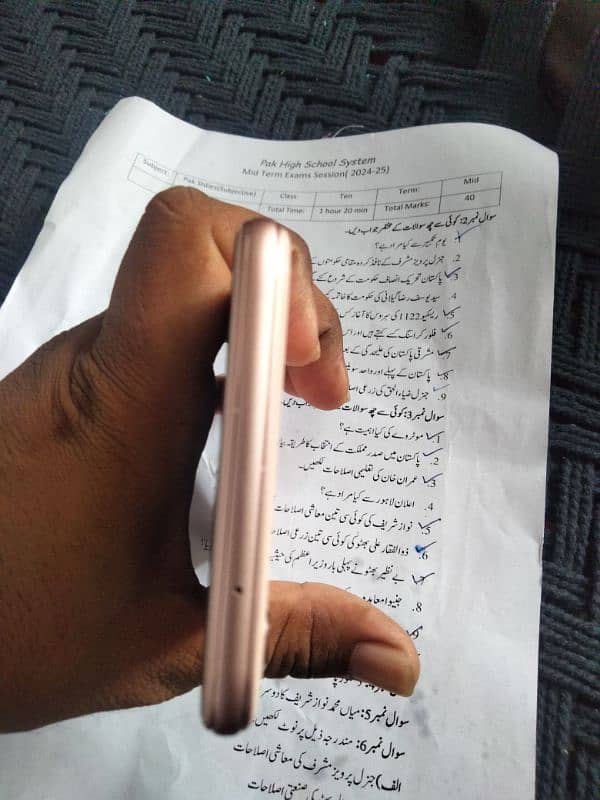 Pak High School System
Mid Term Exams Session( 2024-25)
Subject: Pak Studies(Subjective) Class: Ten Term: Mid
Total Time: 1 hour 20 min Total Marks: 40
سوال نمبر 2: کوئی سے چھ سوالات کے مختصر جواب دیں۔
1. یوم تکبیر سے کیا مراد ہے؟
2. جنرل پرویز مشرف کے نافذ کردہ مقامی حکومتوں کے
3. پاکستان تحریک انصاف حکومت کے شروع کئے
4. سید یوسف رضا گیلانی کی حکومت کا خاتمہ
5. ریسکیو 1122 کی سروس کا آغاز کس
6. فلور کراسنگ کسے کہتے ہیں اور اس
7. مشرقی پاکستان کی علیحدگی کے بعد
8. پاکستان کے پہلے اور واحد سو
9. جنرل ضیاء الحق کی زرعی اصلا
سوال نمبر 3: کوئی سے چھ سوالات جواب دیں۔
1. موٹروے کی کیا اہمیت ہے؟
2. پاکستان میں صدر مملکت کے انتخاب کا طریقہ بیا
3. عمران خان کی تعلیمی اصلاحات لکھیں۔
4. اعلان لاہور سے کیا مراد ہے؟
5. نواز شریف کی کوئی سی تین معاشی اصلاحات
6. ذوالفقار علی بھٹو کی کوئی سی تین زرعی اصلاح
7. بے نظیر بھٹو نے پہلی بار وزیر اعظم کی حیثی
8. جنیوا معاہدہ
9
سوال نمبر 5: میاں محمد نواز شریف کا دوسر
سوال نمبر 6: مندرجہ ذیل پر نوٹ لکھیں۔
الف) جنرل پرویز مشرف کی معاشی اصلاحات
کی صنعتی اصلاحات